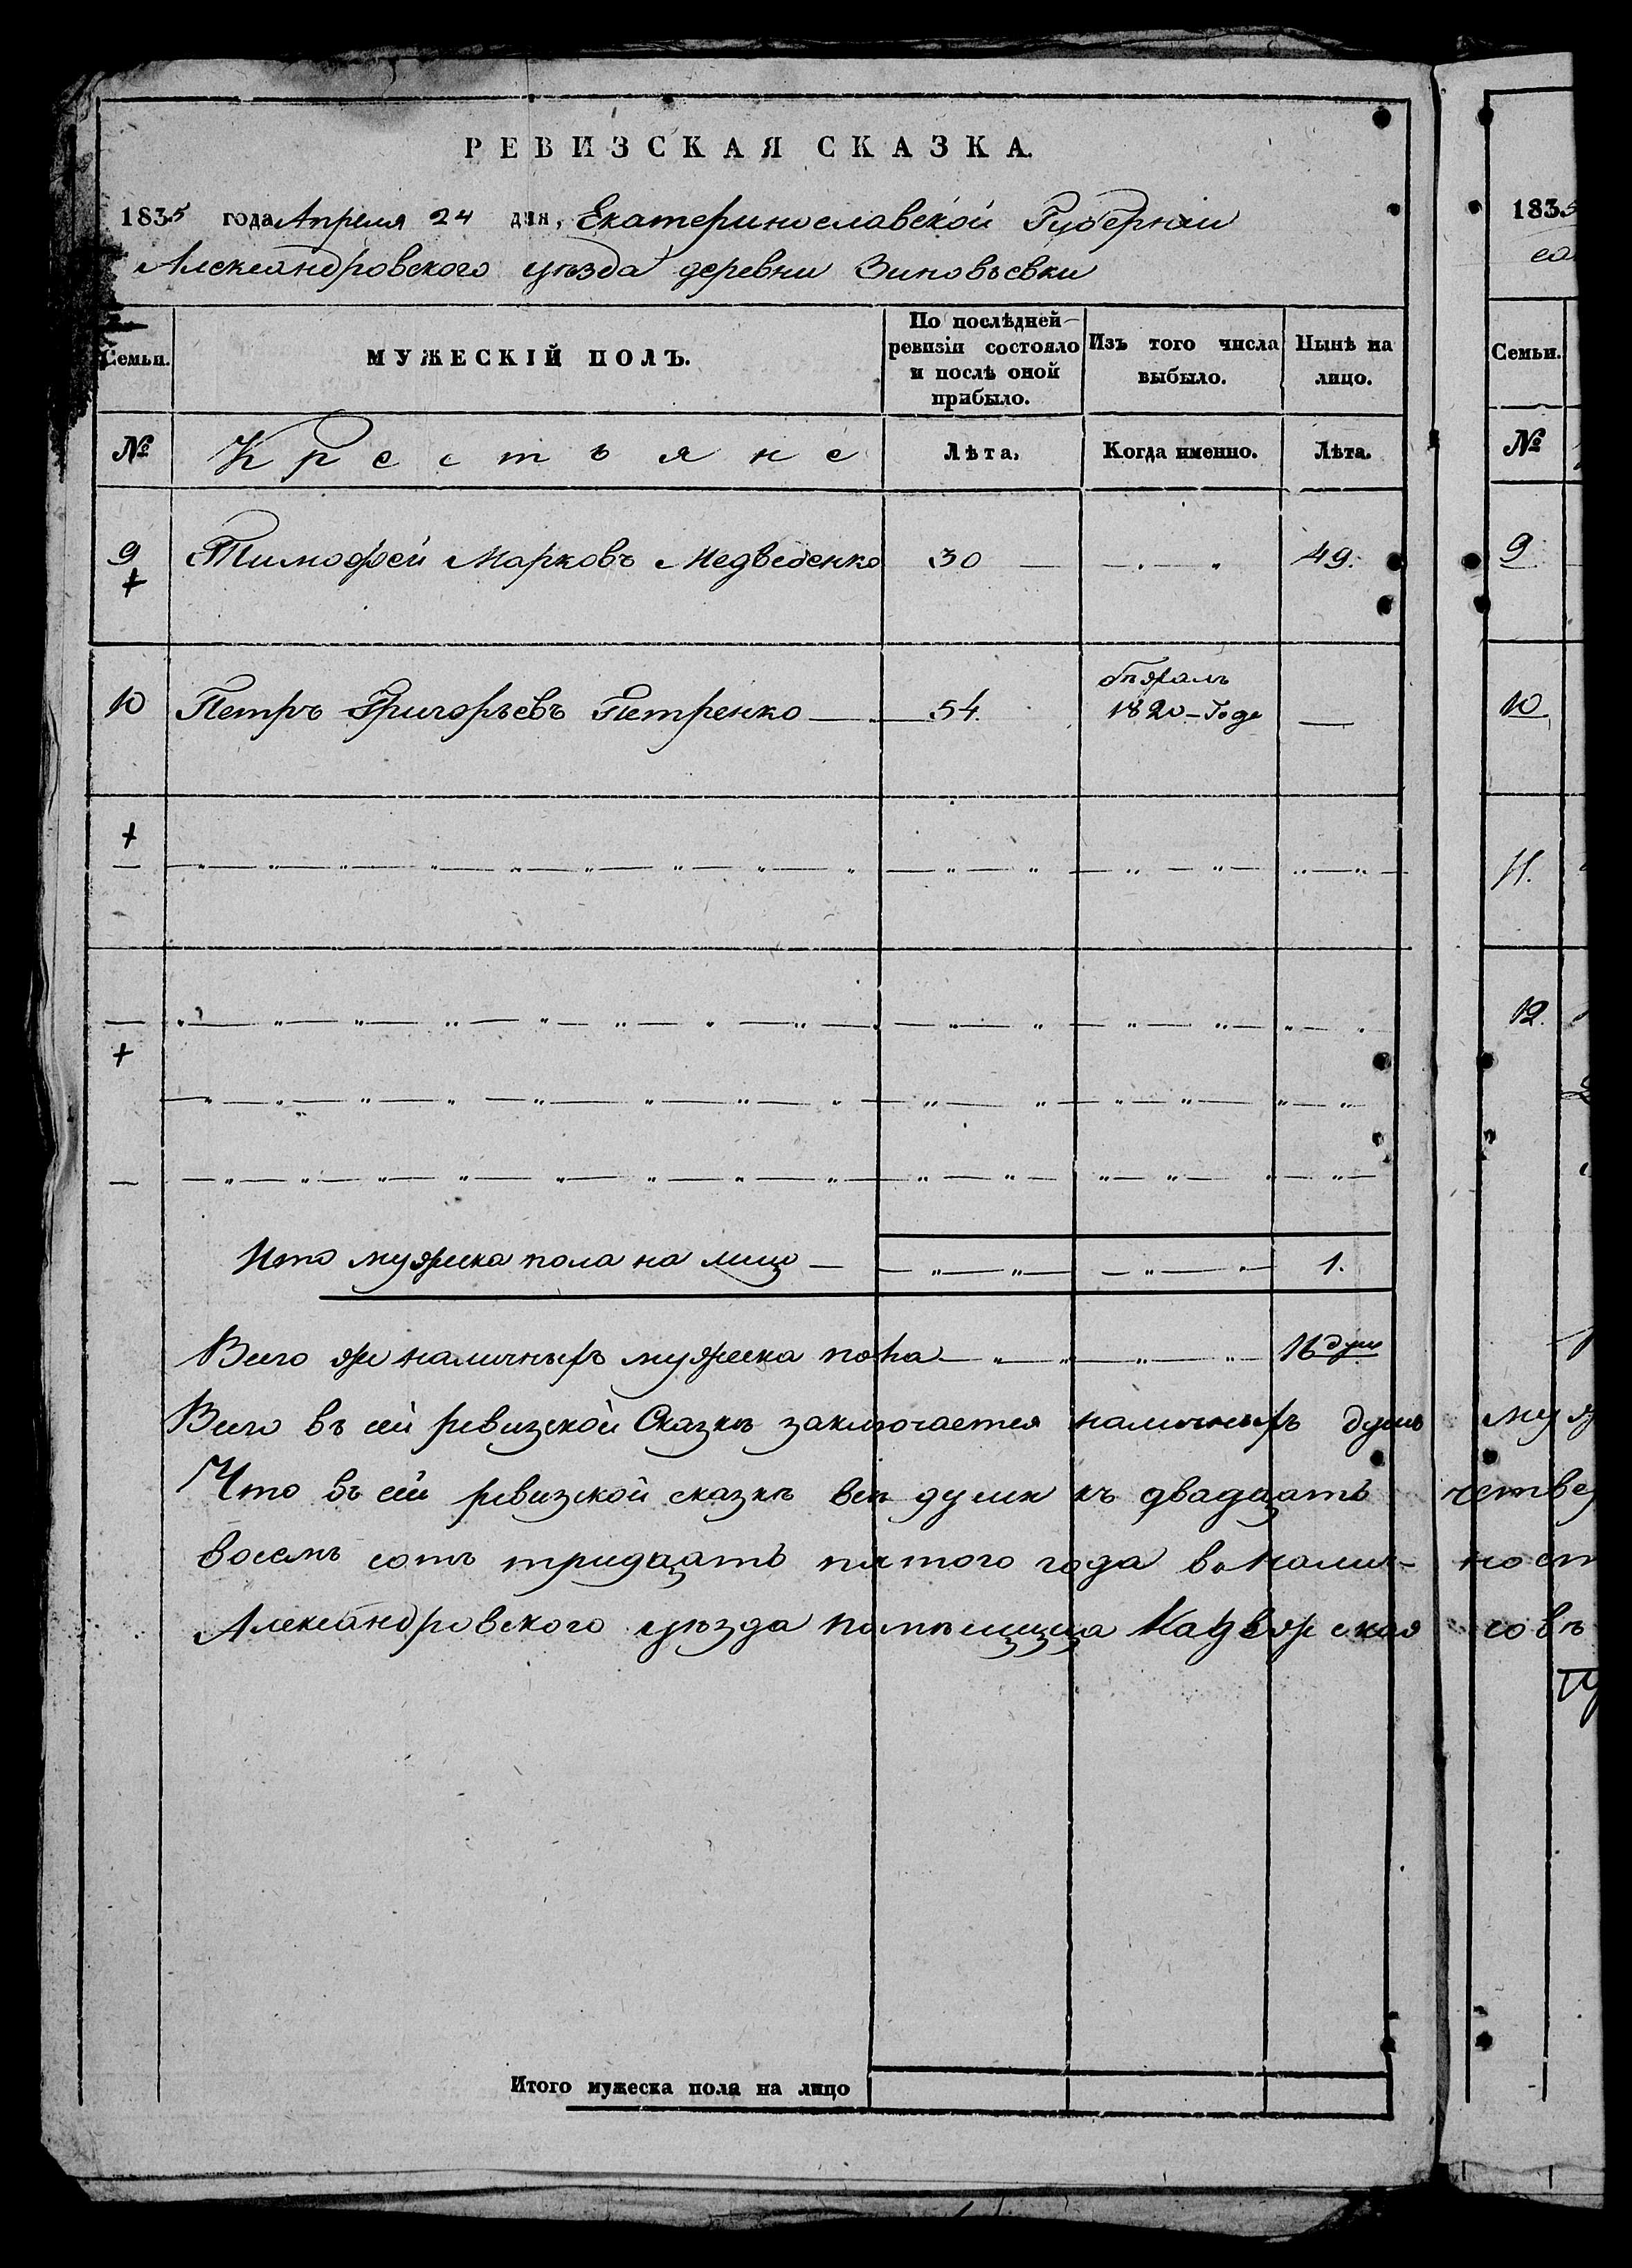 РЕВИЗСКАЯ СКАЗКА.
1835 года Апреля 24 дня, Екатеринославской Губернии
Александровского уѣзда деревни Зиновьевки
Семьи. МУЖЕСКІЙ ПОЛЪ. По послѣдней ревизіи состояло и послѣ оной прибыло. Изъ того числа выбыло. Нынѣ на лицо.
№ Крестьяне Лѣта. Когда именно. Лѣта.
9 Тимофей Марковъ Медведенко 30 49.
10 Петръ Григорьевъ Петренко 54. 1820 Годе
Итого мужеска пола на лицо 1.
Всего же наличныхъ мужеска пола 16 душ
Всего въ сей ревизской Сказкѣ заключается наличныхъ душъ
Что въ сей ревизской сказкѣ всѣ души къ двадцать
восемь сотъ тридцать пятого года в налич-
Александровского уѣзда помѣщица
Итого мужеска пола на лицо
1835
Семьи.
№
9
10
11.
12.